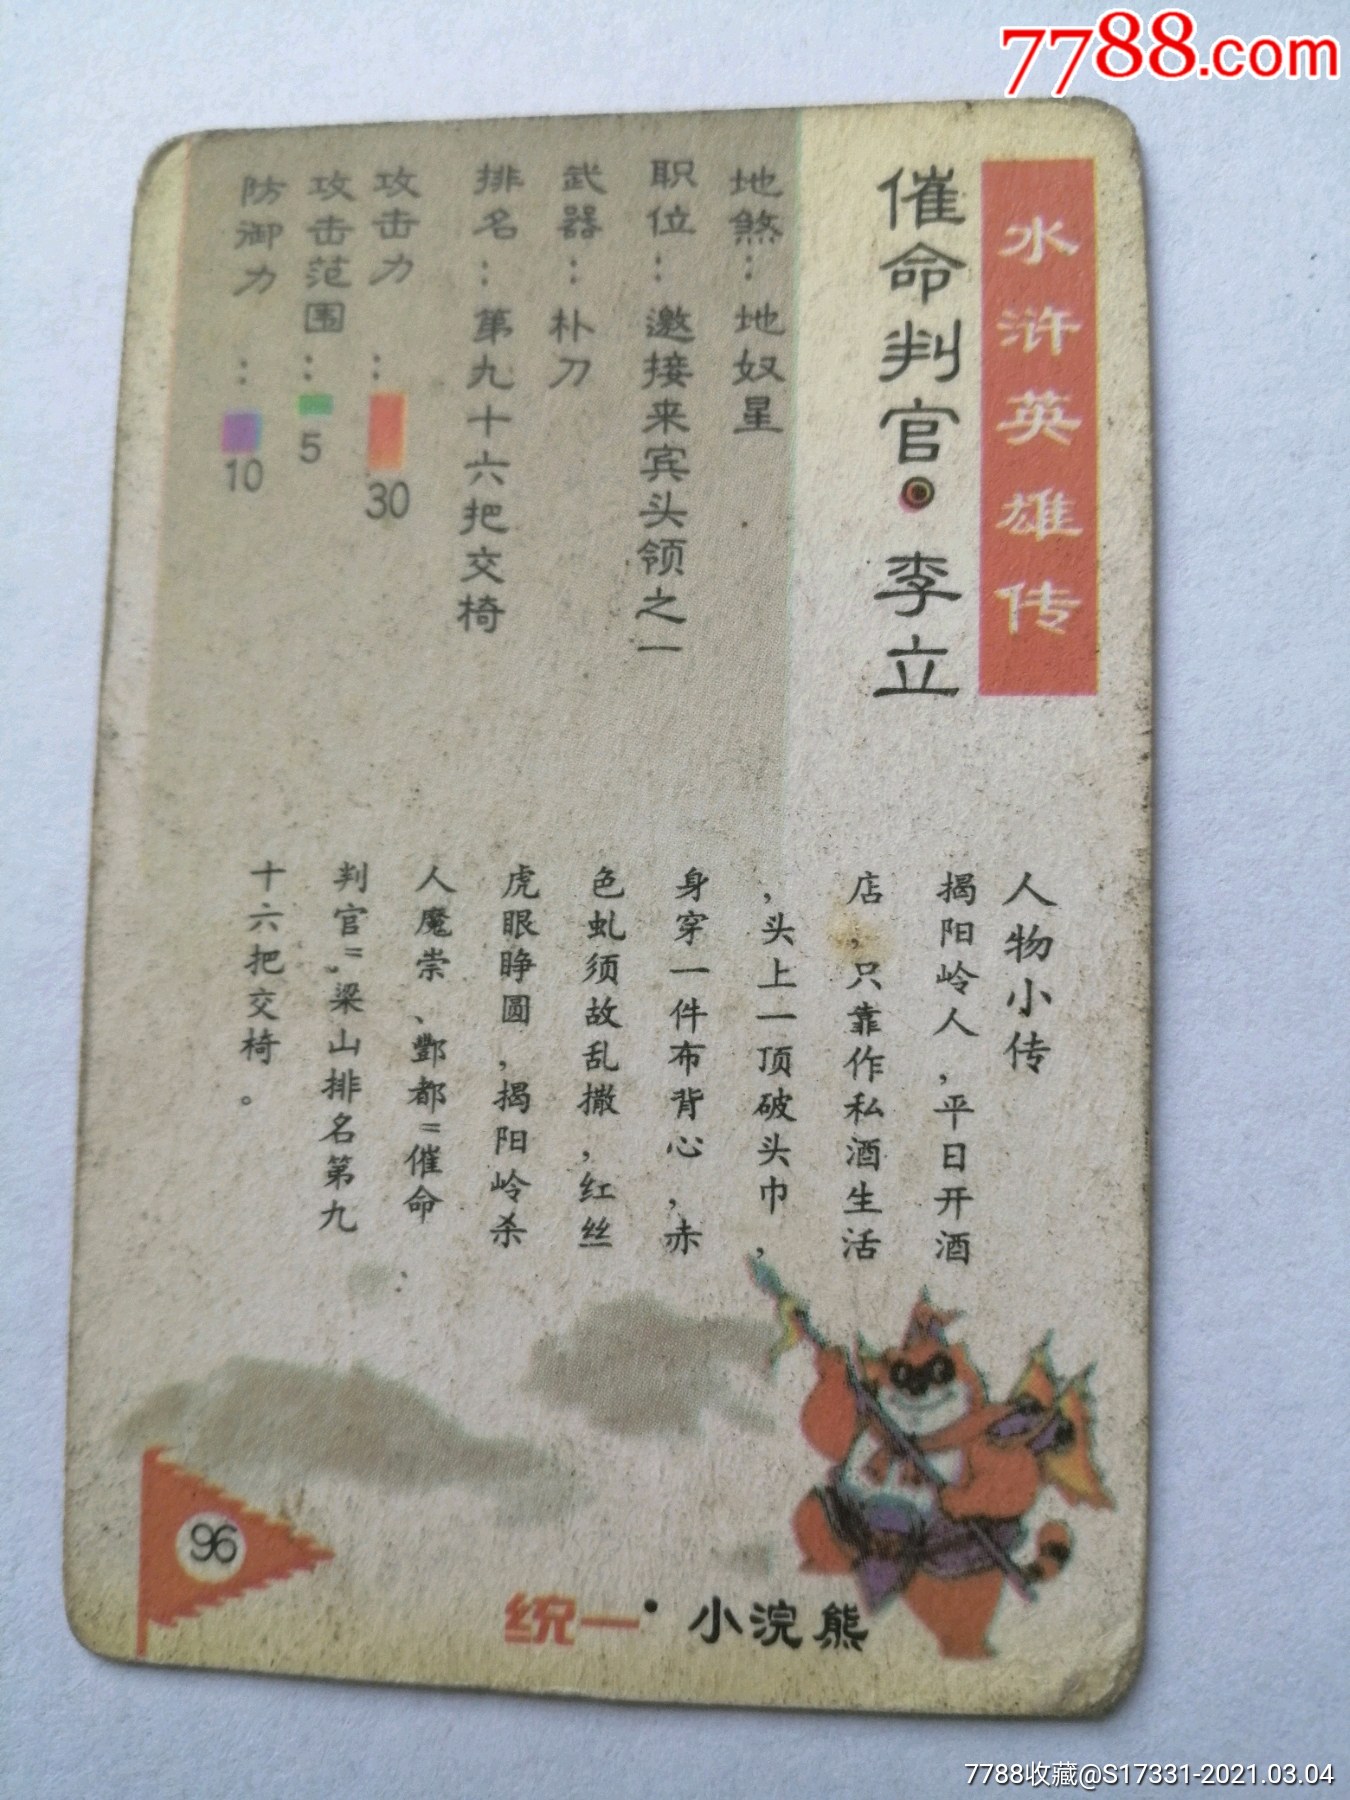 7788.com
水浒英雄传
催命判官·李立
地煞：地奴星
职位：邀接来宾头领之一
武器：朴刀
排名：第九十六把交椅
攻击力：30
攻击范围：5
防御力：10
人物小传
揭阳岭人，平日开酒
店，只靠作私酒生活
，头上一顶破头巾，
身穿一件布背心，赤
色虬须故乱撒，红丝
虎眼睁圆，揭阳岭杀
人魔崇、酆都"催命
判官"，梁山排名第九
十六把交椅。
96
统一·小浣熊
7788收藏@S17331-2021.03.04